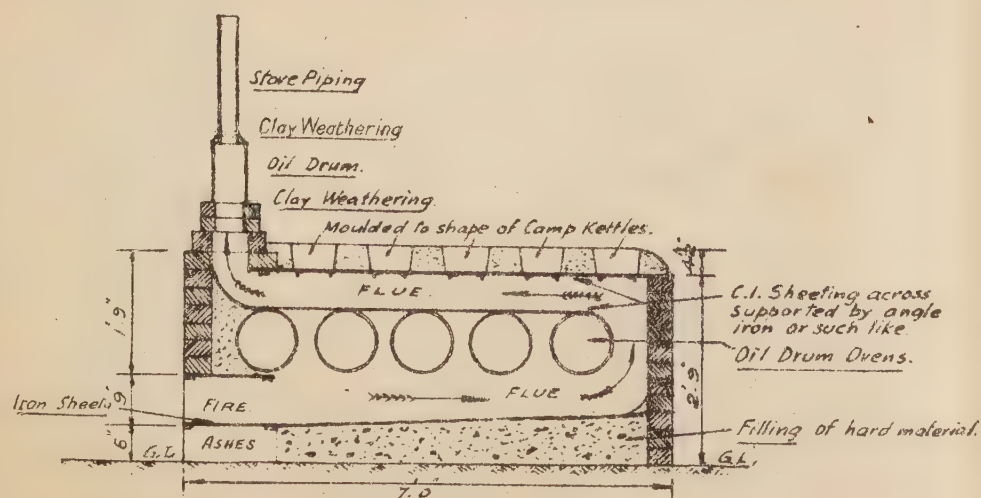 Stove Piping
Clay Weathering
Oil Drum.
Clay Weathering.
Moulded to shape of Camp Kettles.
4½"
FLUE.
C.I. Sheeting across
supported by angle
iron or such like.
Oil Drum Ovens.
1'.9"
2'.9"
FLUE
Iron Sheet
9"
FIRE.
6"
ASHES
Filling of hard material.
G.L
G.L.
7'.0"